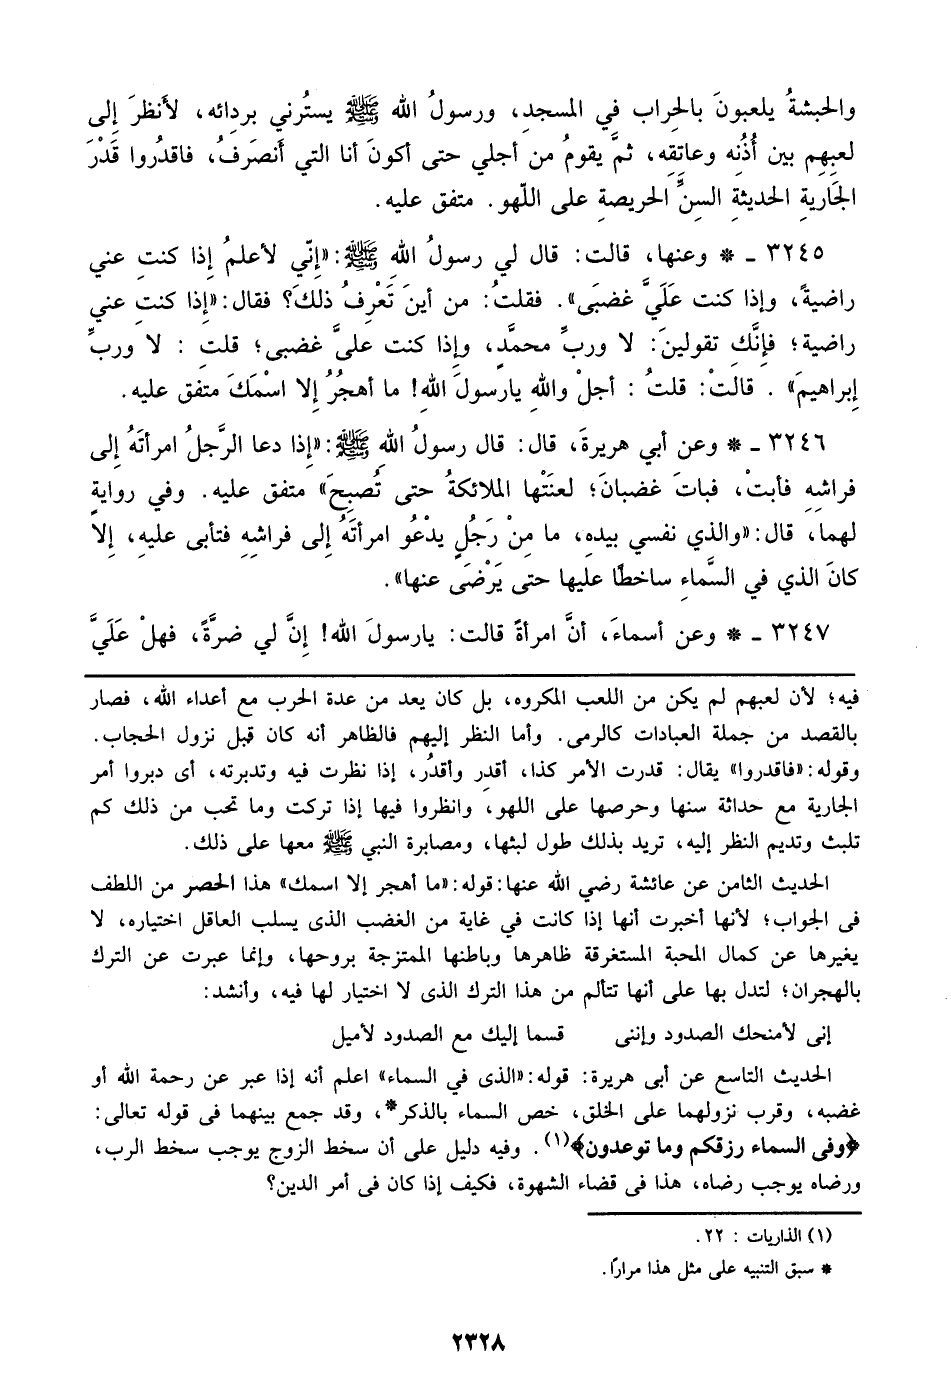 والحبشةُ يلعبونَ بالحِراب في المسجدِ، ورسولُ الله ﷺ يستُرني بردائه، لأنظرَ إِلى
لعبِهم بين أُذُنه وعاتِقِه، ثمَّ يقومُ من أجلي حتى أكونَ أنا التي أَنصَرفُ، فاقدُروا قَدْرَ
الجَاريةِ الحديثةِ السنِّ الحريصةِ على اللّهو. متفق عليه.
٣٢٤٥ ـ * وعنها، قالت: قال لي رسولُ اللهِ ﷺ: «إِنّي لأعلمُ إِذا كنتِ عني
راضيةً، وإذا كنت عَلَيَّ غضبَى». فقلتُ: من أينَ تَعْرِفُ ذلكَ؟ فقال: «إِذا كنتِ عني
راضية؛ فإِنَّكِ تقولينَ: لا وربِّ محمدٍ، وإذا كنت عليَّ غضبى؛ قلتِ : لا وربِّ
إبراهيمَ» . قالتْ: قلتُ : أجلْ واللهِ يارسولَ الله! ما أهجُرُ إِلا اسْمَكَ متفق عليه.
٣٢٤٦ ـ * وعن أبي هريرةَ، قال: قال رسولُ اللهِ ﷺ: «إِذا دعا الرَّجلُ امرأتَهُ إِلى
فراشِهِ فأبتْ، فباتَ غضبانَ؛ لعنَتْها الملائكةُ حتى تُصبِحَ» متفق عليه. وفي روايةٍ
لهما، قال: «والذي نفسي بيدهِ، ما مِنْ رَجُلٍ يدْعُو امرأتَهُ إِلى فراشِهِ فتأبى عليهِ، إِلاَّ
كانَ الذي في السَّماءِ ساخطًا عليها حتى يَرْضَى عنها».
٣٢٤٧ ـ * وعن أسماءَ، أنَّ امرأةً قالت: يارسولَ الله! إِنَّ لي ضرَّةً، فهلْ عَلَيَّ
فيه؛ لأن لعبهم لم يكن من اللعب المكروه، بل كان يعد من عدة الحرب مع أعداء الله، فصار
بالقصد من جملة العبادات كالرمى. وأما النظر إليهم فالظاهر أنه كان قبل نزول الحجاب.
وقوله: «فاقدروا» يقال: قدرت الأمر كذا، أقدِر وأقدُر، إذا نظرت فيه وتدبرته، أى دبروا أمر
الجارية مع حداثة سنها وحرصها على اللهو، وانظروا فيها إذا تركت وما تحب من ذلك كم
تلبث وتديم النظر إليه، تريد بذلك طول لبثها، ومصابرة النبي ﷺ معها على ذلك.
الحديث الثامن عن عائشة رضي الله عنها: قوله: «ما أهجر إلا اسمك» هذا الحصر من اللطف
فى الجواب؛ لأنها أخبرت أنها إذا كانت في غاية من الغضب الذى يسلب العاقل اختياره، لا
يغيرها عن كمال المحبة المستغرقة ظاهرها وباطنها الممتزجة بروحها، وإنما عبرت عن الترك
بالهجران؛ لتدل بها على أنها تتألم من هذا الترك الذى لا اختيار لها فيه، وأنشد:
إنى لأمنحك الصدود وإننى قسما إليك مع الصدود لأميل
الحديث التاسع عن أبى هريرة: قوله: «الذى في السماء» اعلم أنه إذا عبر عن رحمة الله أو
غضبه، وقرب نزولهما على الخلق، خص السماء بالذكر*، وقد جمع بينهما فى قوله تعالى:
﴿وفى السماء رزقكم وما توعدون﴾(١). وفيه دليل على أن سخط الزوج يوجب سخط الرب،
ورضاه يوجب رضاه، هذا فى قضاء الشهوة، فكيف إذا كان فى أمر الدين؟
(١) الذاريات : ٢٢.
* سبق التنبيه على مثل هذا مرارًا.
٢٣٢٨